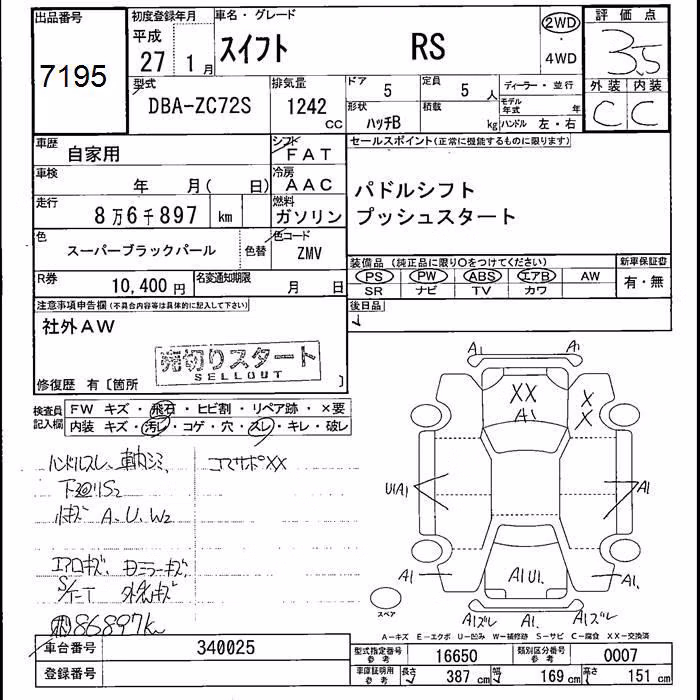 出品番号
7195
初度登録年月
平成
27 1月
車名・グレード
スイフト RS
2WD
・
4WD
評価点
3.5
外装 内装
C C
型式
DBA-ZC72S
排気量
1242 CC
ドア 5
定員 5 人
形状 ハッチB
積載 kg
ディーラー・並行
モデル年式 年
ハンドル 左・右
車歴 自家用
シフト FAT
車検 年 月( 日)
冷房 AAC
走行 8万6千897 km
燃料 ガソリン
色 スーパーブラックパール
色替
色コード ZMV
R券 10,400円
名変通知期限 月 日
セールスポイント(正常に機能するものに限ります)
パドルシフト
プッシュスタート
装備品(純正品に限り○をつけてください)
新車保証書
PS PW ABS エアB AW
SR ナビ TV カワ
有・無
後日品
注意事項申告欄(不具合内容等は具体的に記入して下さい)
社外AW
売切りスタート
SELLOUT
修復歴 有〔箇所 〕
検査員記入欄
FW キズ・飛石・ヒビ割・リペア跡・×要
内装 キズ・汚レ・コゲ・穴・スレ・キレ・破レ
ハンドルスレ、車内シミ、 コマサポXX
下廻りS2
A、U、W2
エアロキズ、
86897km
A1 A1
XX
A1
X
X
UA1
A1
A1
A1U1
A1
A1ズレ A1 A1ズレ
スペア
A−キズ E−エクボ U−凹み W−補修跡 S−サビ C−腐食 XX−交換済
車台番号 340025
登録番号
型式指定番号 参考 16650
類別区分番号 参考 0007
車庫証明用 参考 長さ 387 cm 幅 169 cm 高さ 151 cm